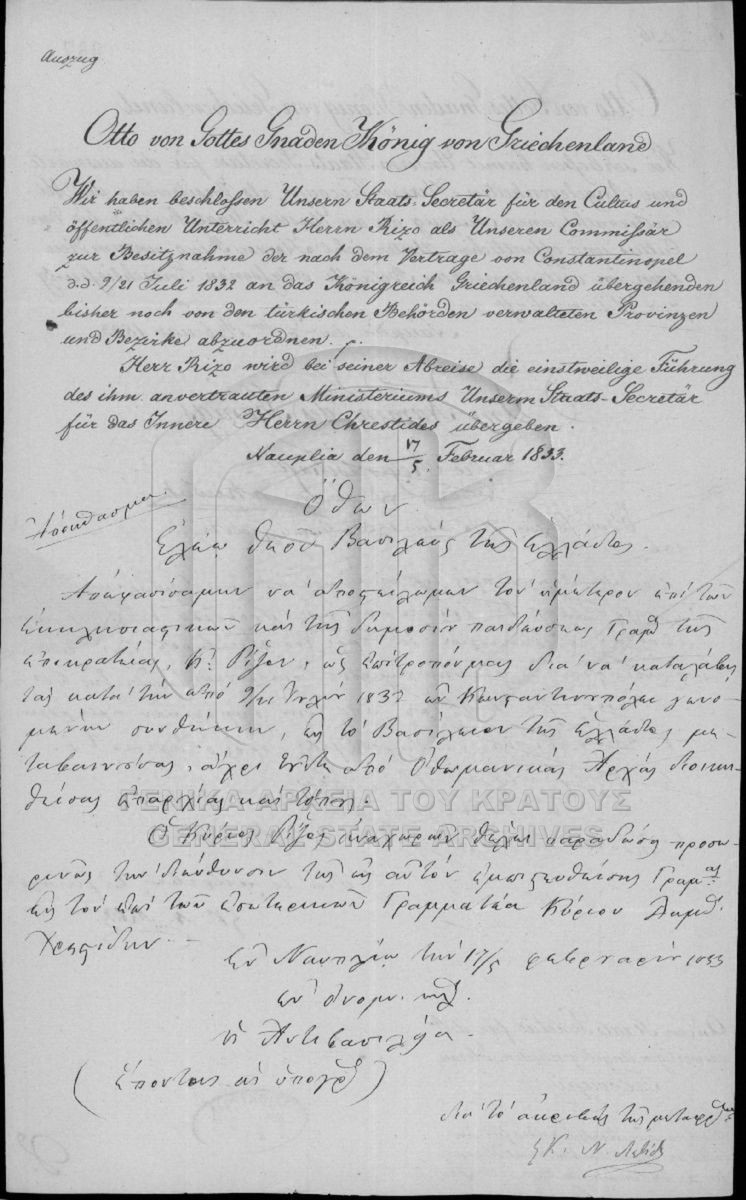 Auszug
Otto von Gottes Gnaden König von Griechenland
Wir haben beschlossen Unsern Staats-Secretär für den Cultus und
öffentlichen Unterricht Herrn Rizo als Unseren Commissär
zur Besitznahme der nach dem Vertrage von Constantinopel
d.d. 9/21 Juli 1832 an das Königreich Griechenland übergehenden
bisher noch von den türkischen Behörden verwalteten Provinzen
und Bezirke abzuordnen.
Herr Rizo wird bei seiner Abreise die einstweilige Führung
des ihm anvertrauten Ministeriums Unserm Staats-Secretär
für das Innere Herrn Chrestides übergeben.
Nauplia den 17/5 Februar 1833.
Ἀπόσπασμα
Ὄθων
Ἐλέῳ Θεοῦ Βασιλεὺς τῆς Ἑλλάδος.
Ἀπεφασίσαμεν νὰ ἀποστείλωμεν τὸν ἡμέτερον ἐπὶ τῶν
ἐκκλησιαστικῶν καὶ τῆς δημοσίου παιδεύσεως Γραμ. τῆς
ἐπικρατείας, Κ. Ρίζον, ὡς ἐπίτροπόν μας διὰ νὰ καταλάβῃ
τὰς κατὰ τὴν ἀπὸ 9/21 Ἰουλίου 1832 ἐν Κωνσταντινουπόλει γενο-
μένην συνθήκην, εἰς τὸ Βασίλειον τῆς Ἑλλάδος με-
ταβαινούσας, ἄχρι ἀπὸ Ὀθωμανικὰς Ἀρχὰς διοικη-
θείσας ἐπαρχίας καὶ τόπους.
ΓΕΝΙΚΑ ΑΡΧΕΙΑ ΤΟΥ ΚΡΑΤΟΥΣ
GENERAL STATE ARCHIVES
Ὁ Κύριος Ρίζος ἀναχωρῶν θέλει παραδώσῃ προσω-
ρινῶς τὴν διεύθυνσιν τῆς εἰς αὐτὸν ἐμπιστευθείσης Γραμ.
εἰς τὸν ἐπὶ τῶν ἐσωτερικῶν Γραμματέα Κύριον
Χρηστίδην.
Ἐν Ναυπλίῳ τὴν 17/5 φεβρουαρίου 1833
ἐν ὀνομ.
ἡ Ἀντιβασιλεία.
(ἕπονται αἱ ὑπογρ)
διὰ τὸ ἀκριβὲς τῆς μεταφρ